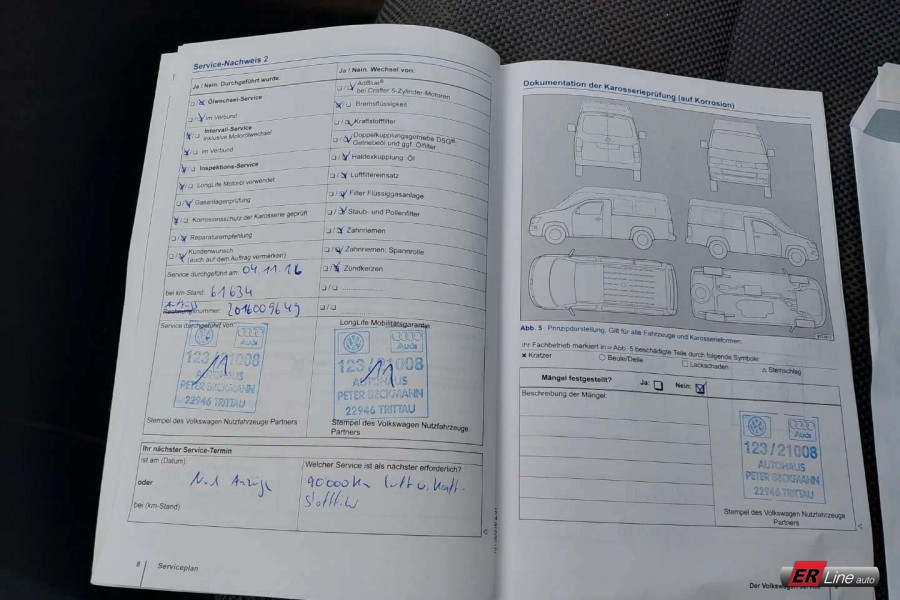 Service-Nachweis 2
Ja / Nein. Durchgeführt wurde:
Ölwechsel-Service
im Verbund
Intervall-Service
inklusive Motorölwechsel
im Verbund
Inspektions-Service
LongLife Motoröl verwendet
Gasanlagenprüfung
Korrosionsschutz der Karosserie geprüft
Reparaturempfehlung
Kundenwunsch
(auch auf dem Auftrag vermerken)
Service durchgeführt am: 04.11.16
bei km-Stand: 61634
nummer: 2016009649
Service durchgeführt von:
Audi
123/21008
AUTOHAUS
PETER BECKMANN
22946 TRITTAU
Stempel des Volkswagen Nutzfahrzeuge Partners
Ja / Nein. Wechsel von:
AdBlue®
bei Crafter 5-Zylinder-Motoren
Bremsflüssigkeit
Kraftstofffilter
Doppelkupplungsgetriebe DSG®:
Getriebeöl und ggf. Ölfilter
Haldexkupplung: Öl
Luftfiltereinsatz
Filter Flüssiggasanlage
Staub- und Pollenfilter
Zahnriemen
Zahnriemen, Spannrolle
Zündkerzen
LongLife Mobilitätsgarantie
Audi
123/21008
AUTOHAUS
PETER BECKMANN
22946 TRITTAU
Stempel des Volkswagen Nutzfahrzeuge
Partners
Ihr nächster Service-Termin
ist am (Datum)
oder
bei (km-Stand)
Welcher Service ist als nächster erforderlich?
90000 Km Luft u. Kraft-
8
Serviceplan
Dokumentation der Karosserieprüfung (auf Korrosion)
Abb. 5 Prinzipdarstellung. Gilt für alle Fahrzeuge und Karosserieformen.
Ihr Fachbetrieb markiert in ⇒ Abb. 5 beschädigte Teile durch folgende Symbole:
x Kratzer
○ Beule/Delle
□ Lackschaden
△ Steinschlag
Mängel festgestellt?
Ja:
Nein:
Beschreibung der Mängel:
Audi
123/21008
AUTOHAUS
PETER BECKMANN
22946 TRITTAU
Stempel des Volkswagen Nutzfahrzeuge
Partners
Der Volkswagen Service
ER Line auto